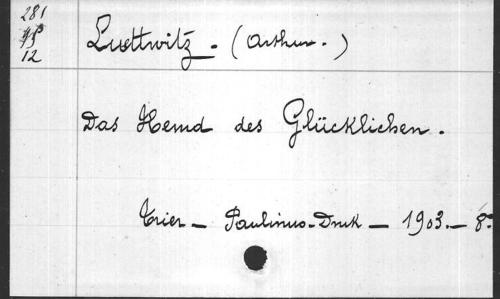 281
12
Luettwitz. (Arthur.)
Das Hemd des Glücklichen.
Trier — Paulinus-Druk — 1903. — 8.